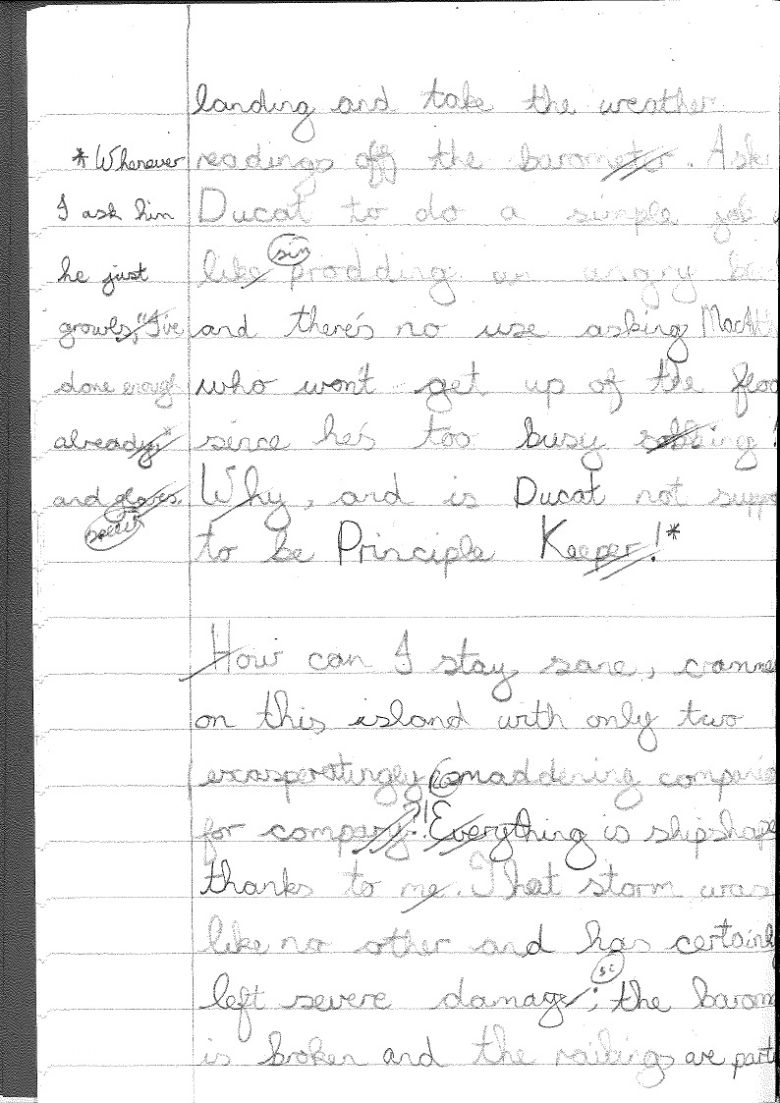 landing and take the weather
readings off the barometer. Ask
Ducat to do a simple job
like prodding an angry
sim
and there's no use asking
who won't get up of the
since he's too busy
Why, and is Ducat not
to be Principle Keeper!*
* Whenever
I ask him
he just
growls, "I've
done enough
already,"
and glares.
How can I stay sane,
on this island with only two
exasperatingly maddening
for company?! Everything is shipshape
thanks to me. That storm was
like no other and has certainly
left severe damage; the
sc
is broken and the railings are